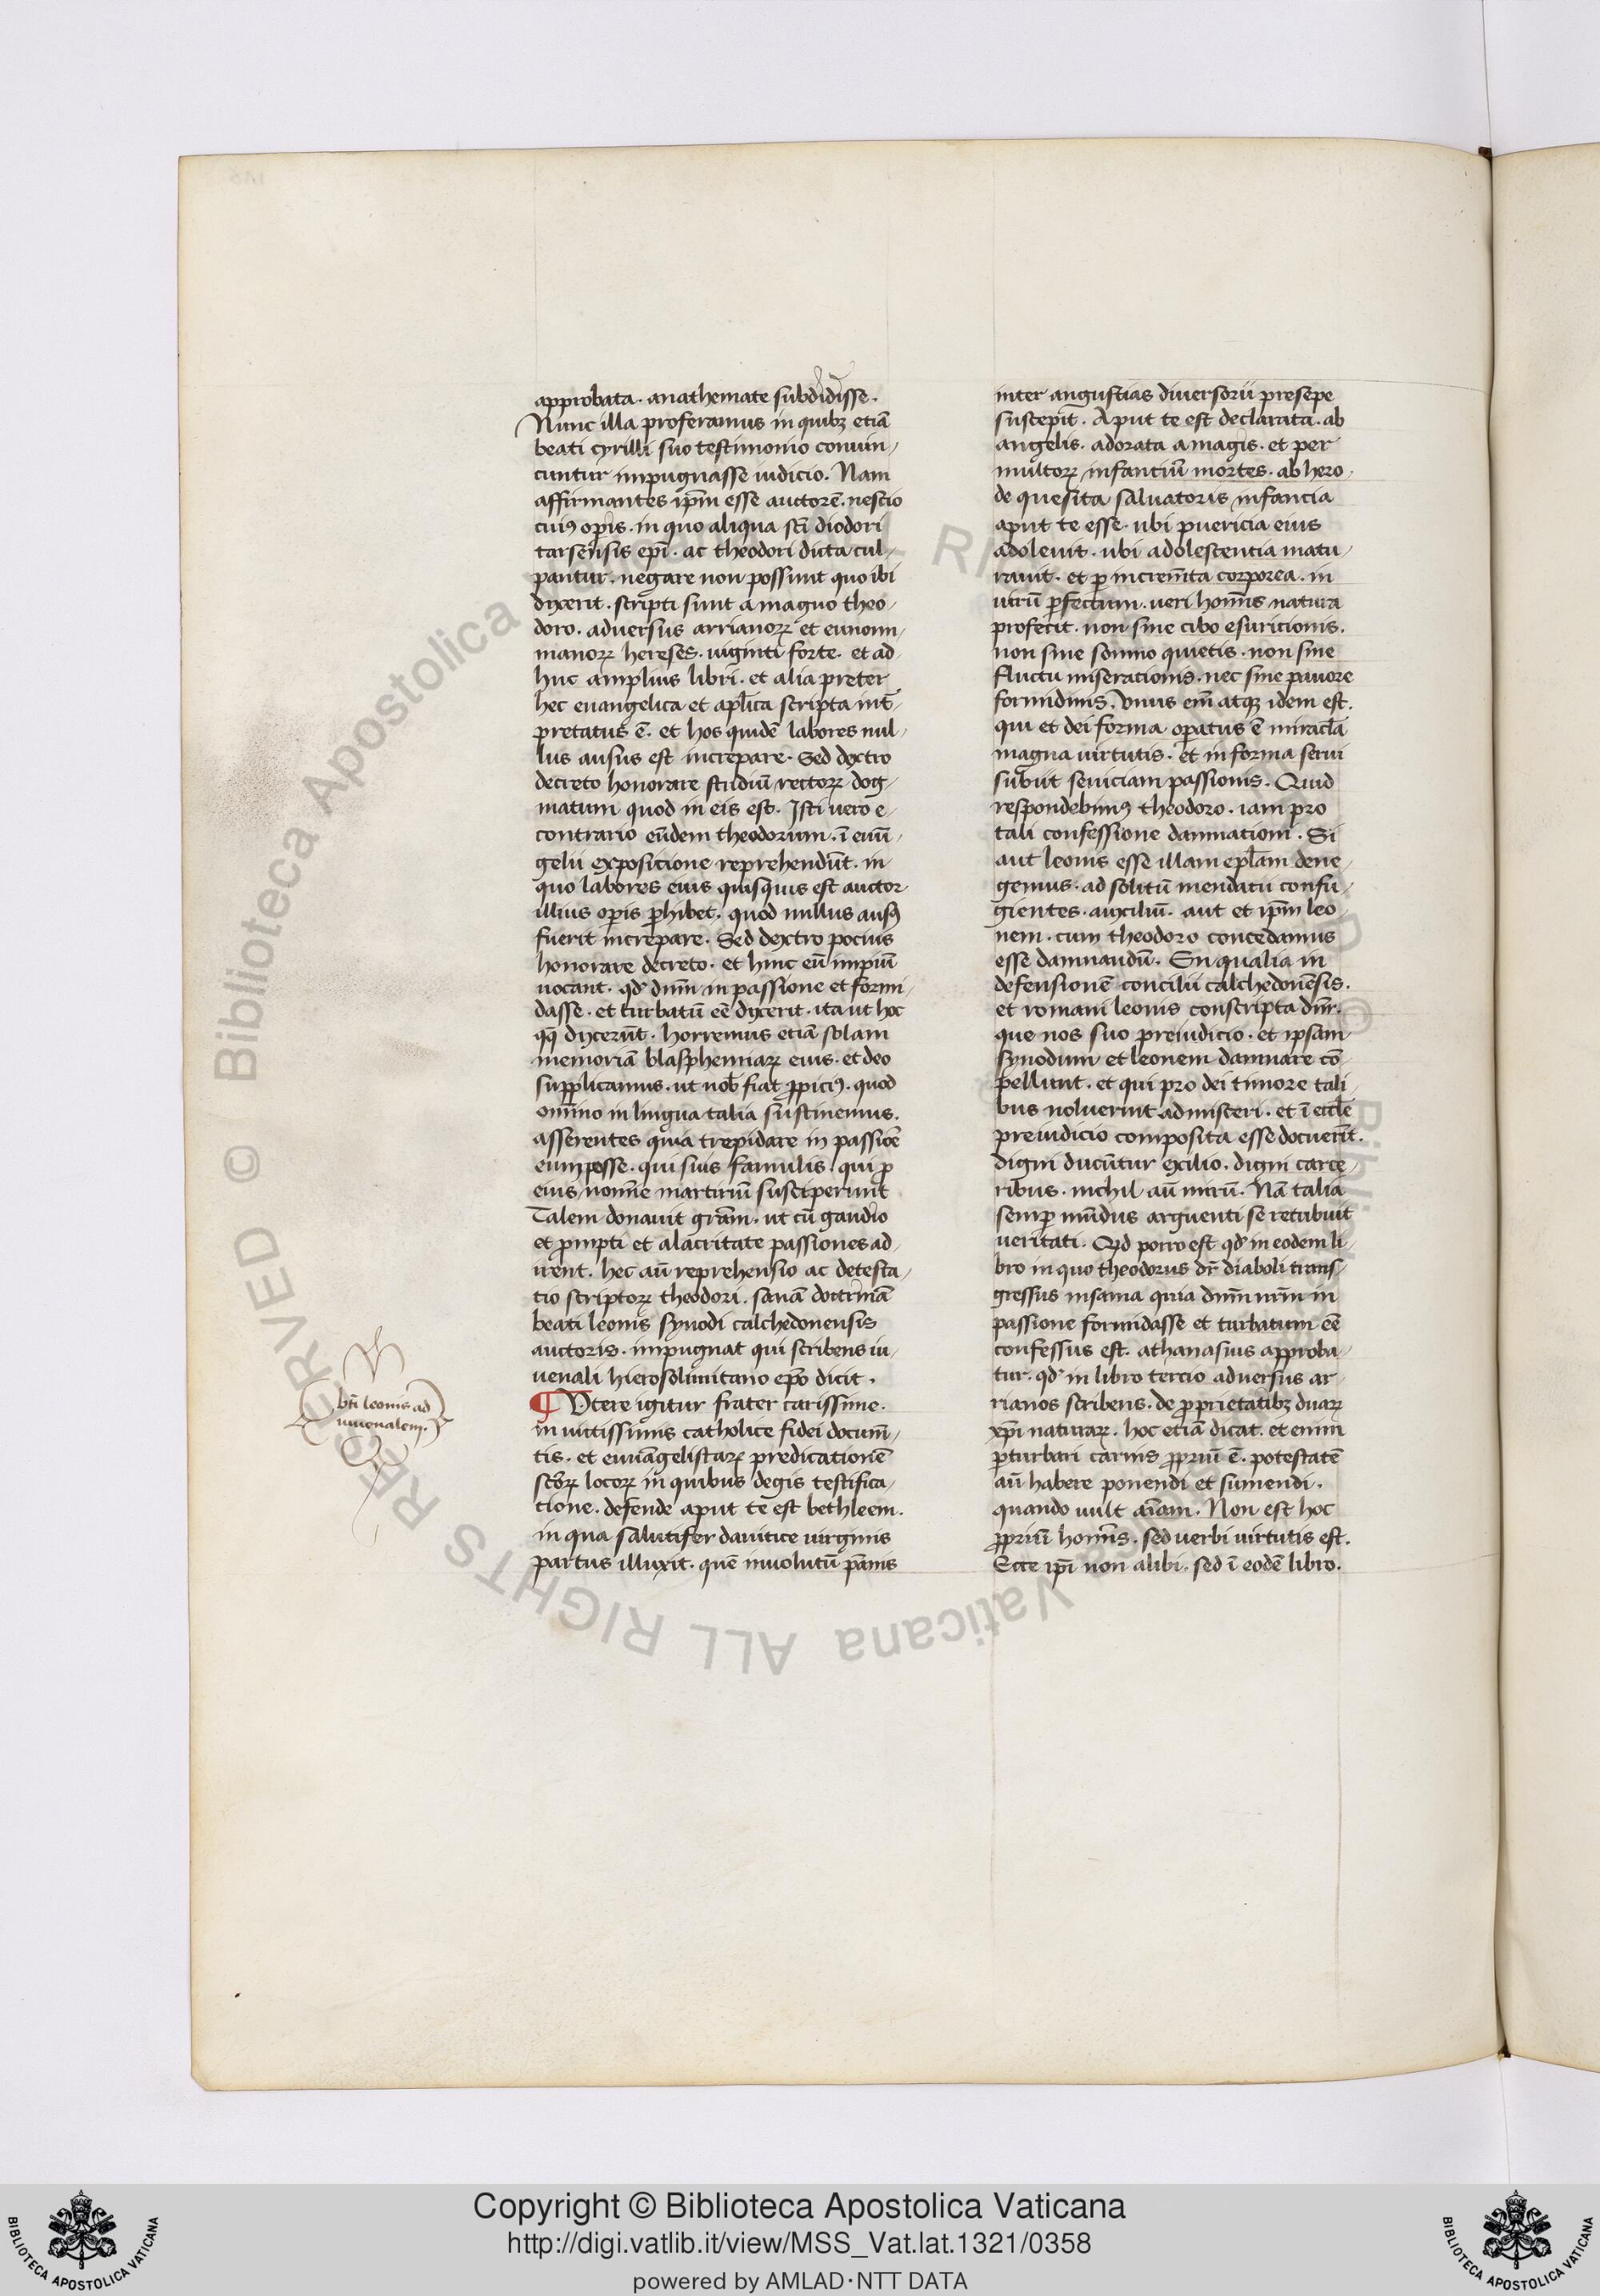 approbata. anathemate subdidisse.
Nunc illa proferamus in quibꝫ etiā
beati cyrilli suo testimonio conuin-
cuntur impugnasse iudicio. Nam
affirmantes ip̄m esse auctorē. nescio
cuiꝰ oꝑis. in quo aliqua sc̄i diodori
tarsensis ep̄i. ac theodori dicta cul-
pantur. negare non possunt quo ibi
dixerit. scripti sunt a magno theo-
doro. aduersus arrianoꝝ et eunom-
mianoꝝ hereses. uiginti forte. et ad-
huc amplius libri. et alia preter
hec euangelica et apl̄ica scripta int̄-
pretatus ē. et hos quidē labores nul-
lus ausus est increpare. Sed dextro
decreto honorare studiū rectoꝝ dog-
matum quod in eis est. Isti uero e-
contrario eūdem theodorum. ī euū-
gelii exposicione reprehendūt. in
quo labores eius quisquis est auctor
illius oꝑis ꝑhibet. quod nullus ausꝰ
fuerit increpare. Sed dextro pocius
honorare decreto. et hinc eū impiū
uocant. qd̛ dn̄m in passione et formi-
dasse. et turbatū eē dixerit. ita ut hoc
qꝫ dixerūt. horremus etiā solam
memoriā blasphemiaꝝ eius. et deo
supplicamus. ut nob̄ fiat ꝓpiciꝰ. quod
om̄ino in lingua talia sustinemus.
asserentes quia trepidare in passiōe
eum posse. qui suis famulis. qui ꝓ
eius nomīe martiriū susceperunt
Talem donauit gr̄am. ut cū gaudio
et ꝓmpti et alacritate passiones ad-
irent. hec aū reprehensio ac detesta-
tio scriptoꝝ theodori. sanā doctrinā
beati leonis synodi calchedonensis
auctoris. impugnat qui scribens iu-
uenali hierosolimitano ep̄o dicit.
¶ Utere igitur frater carissime.
inuictissimis catholice fidei documē-
tis. et euuāgelistaꝝ predicationē
sc̄oꝝ locoꝝ in quibus degis testifica-
tione. defende aput te est bethleem.
in qua salutifer dauitice uirginis
partus illuxit. quē inuolutū pānis
bt̄i leonis ad
iuuenalem.
inter angustias diuersorii presepe
suscepit. Aput te est declarata. ab
angelis. adorata a magis. et per
multoꝝ infantiū mortes. ab hero-
de quesita saluatoris infancia
aput te esse. ubi puericia eius
adoleuit. ubi adolescentia matu-
rauit. et ꝑ increm̄ta corporea. in
uirū ꝑfectum. ueri homīs natura
profecit. non sine cibo esuricionis.
non sine somno quietis. non sine
fluctu miseracionis. nec sine pauore
formidinis. Vnus em̄ atqꝫ idem est.
qui et dei forma oꝑatus ē miracl̄a
magna uirtutis. et in forma serui
subiit seuiciam passionis. Quid
respondebimꝰ theodoro. iam pro
tali confessione damnationi. Si
aut leonis esse illam epl̄am dene-
gemus. ad solitū mendacii confu-
gientes. auxiliū. aut et ip̄m leo-
nem. cum theodoro concedamus
esse damnandū. En qualia in
defensionē concilii calchedonēsis.
et romani leonis conscripta dn̄r.
que nos suo preiudicio. et ipsam
synodum et leonem damnare cō-
pellunt. et qui pro dei timore tali
bus noluerint admisceri. et ī eccl̄ie
preiudicio composita esse docuerīt.
digni ducūtur exilio. digni carce-
ribus. nichil aū mirū. Nā talia
semꝑ mūdus arguenti se retribuit
ueritati. Qd porro est qd̛ in eodem li-
bro in quo theodorus dr̄ diaboli trans-
gressus insania quia dn̄m nr̄m in
passione formidasse et turbatum eē
confessus est. athanasius approba-
tur. qd̛ in libro tercio aduersus ar-
rianos scribens. de ꝓprietatibꝫ duaꝝ
xp̄i naturaꝝ. hoc etiā dicat. et enim
ꝑturbari carnis ꝓpriū ē. potestatē
aū habere ponendi et sumendi.
quando uult aīam. Non est hoc
ꝓpriū homīs. sed uerbi uirtutis est.
Ecce ip̄i non alibi. sed ī eodē libro.
© Biblioteca Apostolica Vaticana ALL RIGHTS RESERVED
Copyright © Biblioteca Apostolica Vaticana
http://digi.vatlib.it/view/MSS_Vat.lat.1321/0358
powered by AMLAD·NTT DATA
BIBLIOTECA APOSTOLICA VATICANA
BIBLIOTECA APOSTOLICA VATICANA